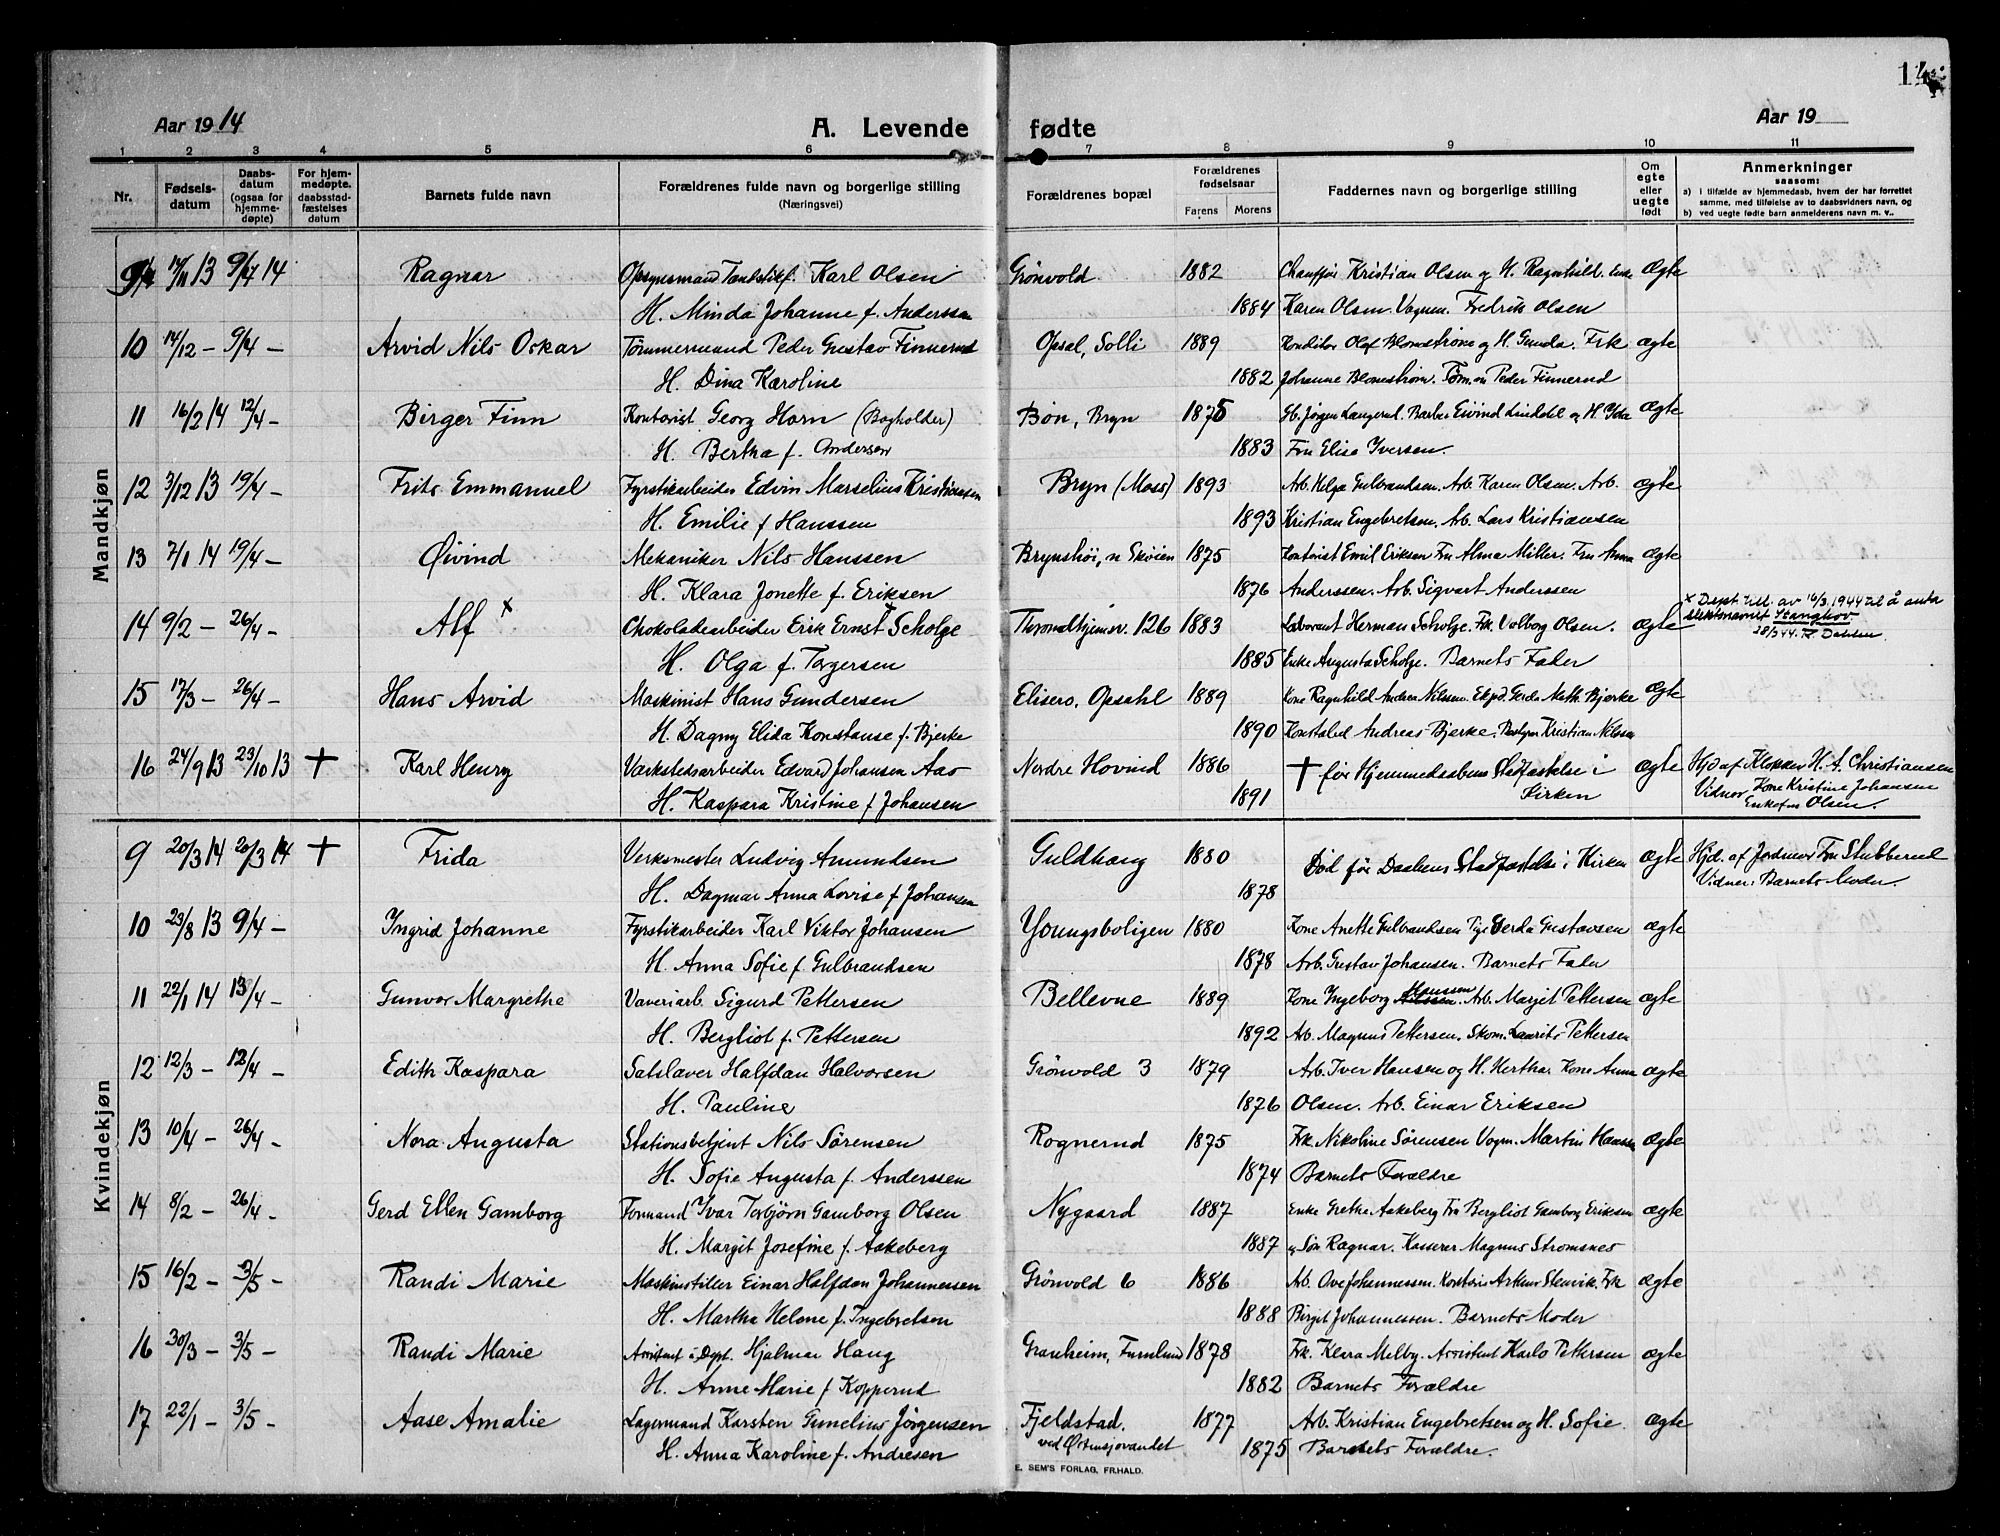 14
Aar 1914 A. Levende fødte Aar 19
1 2 3 4 5 6 7 8 9 10 11
Nr. Fødselsdatum Daabsdatum (ogsaa for hjemmedøpte) For hjemmedøpte. daabsstadfæstelses datum Barnets fulde navn Forældrenes fulde navn og borgerlige stilling (Næringsvei) Forældrenes bopæl Forældrenes fødselsaar Farens Morens Faddernes navn og borgerlige stilling Om egte eller uegte født Anmerkninger saasom: a) i tilfælde av hjemmedaab, hvem der har forrettet samme, med tilføielse av to daabsvidners navn, og b) ved uegte fødte barn anmelderens navn m. v..
Mandkjøn
9 17/11 13 9/4 14 Ragnar Opsynsmand Tændstikf. Karl Olsen Grönvold 1882 Chauffør Kristian Olsen og H. Ragnhild. Enke Ægte
H. Minda Johanne f. Anderssen 1884 Karen Olsen. Vognm. Fredrik Olsen
10 14/12 – 9/4 – Arvid Nils Oskar Tömmermand Peder Gustav Finnerud Opsal, Solli 1889 Konditor Olaf Blomstrøm og H. Gunda. Frk ægte
H. Dina Karoline 1882 Johanne Blomstrøm. Tøm.m Peder Finnerud
11 16/2 14 12/4 – Birger Finn Kontorist Georg Horn (Bogholder) Bøn, Bryn 1875 Gb. Jørgen Langerud. Barber Eivind Linddal og H Ida Ægte
H. Bertha f. Andersen 1883 Fru Elise Iversen.
12 3/12 13 19/4 – Frits Emmanuel Fyrstikarbeider Edvin Marselius Kristiansen Bryn (Moss) 1893 Arb. Helga Gulbrandsen. Arb. Karen Olsen. Arb. ægte
H. Emilie f Hanssen 1893 Kristian Engebretsen. Arb. Lars Kristiansen
13 7/1 14 19/4 – Øivind Mekaniker Nils Hanssen Brynshøi, n Skøien 1875 Kontorist Emil Eriksen Fru Alma Miller. Fru Anna ægte
H. Klara Jonette f. Eriksen 1876 Anderssen. Arb. Sigvart Anderssen
14 9/2 – 26/4 – Alf x Chokoladearbeider Erik Ernst Scholze Throndhjemsv. 126 1883 Laborant Herman Scholze. Frk. Valborg Olsen. ægte x Dept. till. av 16/3.1944 til å anta slektsnavnet Stangskov 28/3 44. Dahlen
H. Olga f. Torgersen 1885 Enke Augusta Scholze. Barnets Fader
15 17/3 – 26/4 – Hans Arvid Maskinist Hans Gundersen Elisero, Opsahl 1889 Kone Ragnhild Andrea Nilssen. Ekpd. Gerda Math. Bjerke Ægte
H. Dagny Elida Konstanse f. Bjerke 1890 Andreas Bjerke. Kristian Nilssen
16 24/9 13 23/10 13 † Karl Henry Værkstedsarbeider Edvard Johansen Aas Nordre Hovind 1886 † før Hjemmedaabens Stadfæstelse i Kirken ægte Hjd af Klokker H. A. Christiansen
H. Kaspara Kristine f Johansen 1891 Vidner Kone Kristine Johansen Enkefru Olsen.
Kvindekjøn
9 20/3 14 20/3 14 † Frida Verksmester Ludvig Amundsen Guldhaug 1880 Død før Daabens Stadfæstelse i Kirken ægte Hjd. af Jordmor Fru Stubberud
H. Dagmar Anna Lovise f Johansen 1878 Vidner: Barnets Moder.
10 23/8 13 9/4 – Ingrid Johanne Fyrstikarbeider Karl Viktor Johansen Youngsboligen 1880 Kone Anette Gulbrandsen Pige Gerda Gustavsen ægte
H. Anna Sofie f. Gulbrandsen 1878 Arb. Gustav Johansen. Barnets Fader
11 22/1 14 13/4 – Gunvor Margrethe Væveriarb. Sigurd Pettersen Bellevue 1889 Kone Ingeborg Hanssen. Arb. Marjit Pettersen ægte
H. Bergliot f. Pettersen 1892 Arb. Magnus Pettersen. Skom. Laurits Pettersen
12 12/3 – 12/4 – Edith Kaspara Salslaver Halfdan Halvorsen Grönvold 3 1879 Arb. Iver Hansen og H. Herthar Kone Anna ægte
H. Pauline 1876 Olsen. Arb. Einar Eriksen
13 10/4 – 26/4 – Nora Augusta Stationsbetjent Nils Sörensen Rognerud 1875 Frk. Nikoline Sørensen Vogm. Martin Hanssen Ægte
H. Sofie Augusta f. Anderssen 1874 Barnets Forældre
14 8/2 – 26/4 – Gerd Ellen Gamborg Formand Ivar Torbjörn Gamborg Olsen Nygaard 1887 Enke Grethe Aakeberg Fru Bergliot Gamborg Eriksen ægte
H. Margit Josefine f. Aakeberg 1887 og Søn Ragnar. Kasserer Magnus Stromsnes
15 16/2 – 3/5 – Randi Marie Maskinstiller Einar Halfdan Johannesen Grönvold 6 1886 Arb. Ove Johannessen. Kontoris Arthur Stenvik. Frk ægte
H. Martha Helene f. Ingebretsen 1888 Birgit Johannessen. Barnets Moder
16 30/3 – 3/5 – Randi Marie Assistent i Dept. Hjalmar Haug Granheim, Furulund 1878 Frk. Klara Melby. Assistent Karlo Pettersen ægte
H. Anne Marie f Kopperud 1882 Barnets Forældre
17 22/1 – 3/5 – Aase Amalie Lagermand Karsten Gunelius Jørgensen Fjeldstad. 1877 Arb. Kristian Engebretsen og H. Sofie. ægte
H. Anna Karoline f. Andresen ved Østensjøvandet 1875 Barnets Forældre.
E. SEM'S FORLAG, FR.HALD.